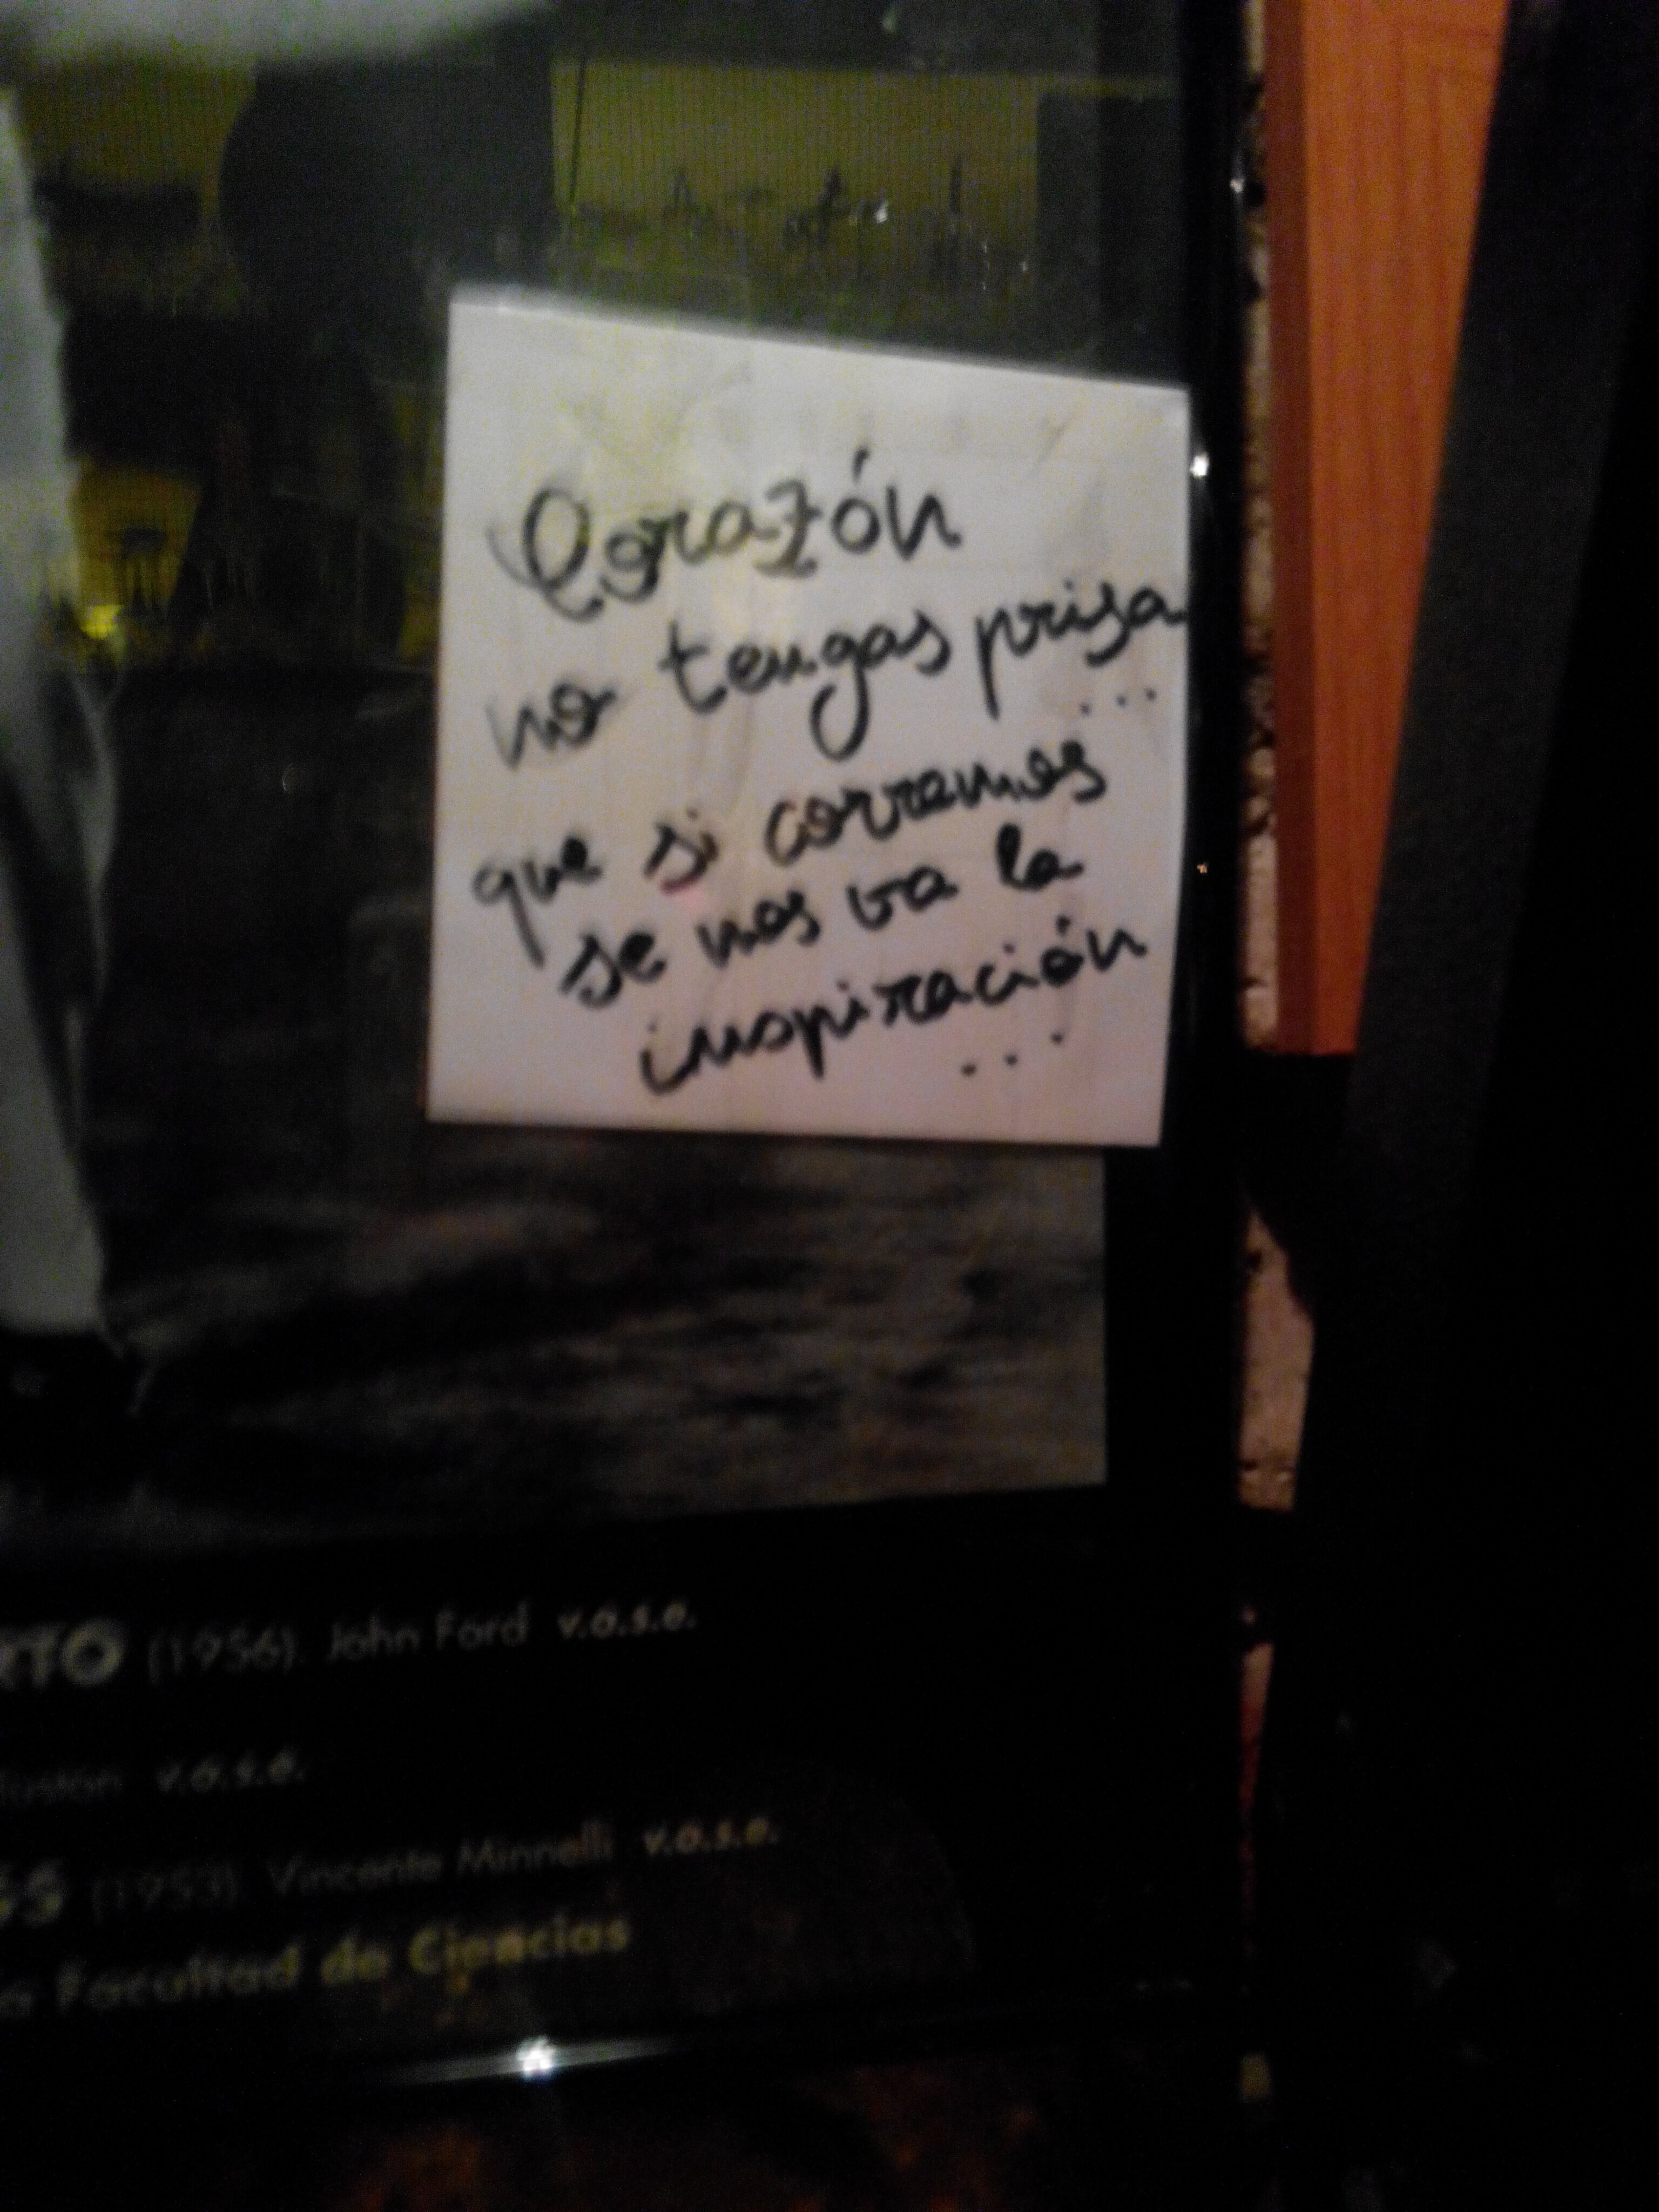 Corazón
no tengas prisa
...
que si corremos
se nos va la
inspiración
...
RTO (1956). John Ford v.o.s.e.
v.o.s.e.
(1953). Vincente Minnelli v.o.s.e.
Facultad de Ciencias